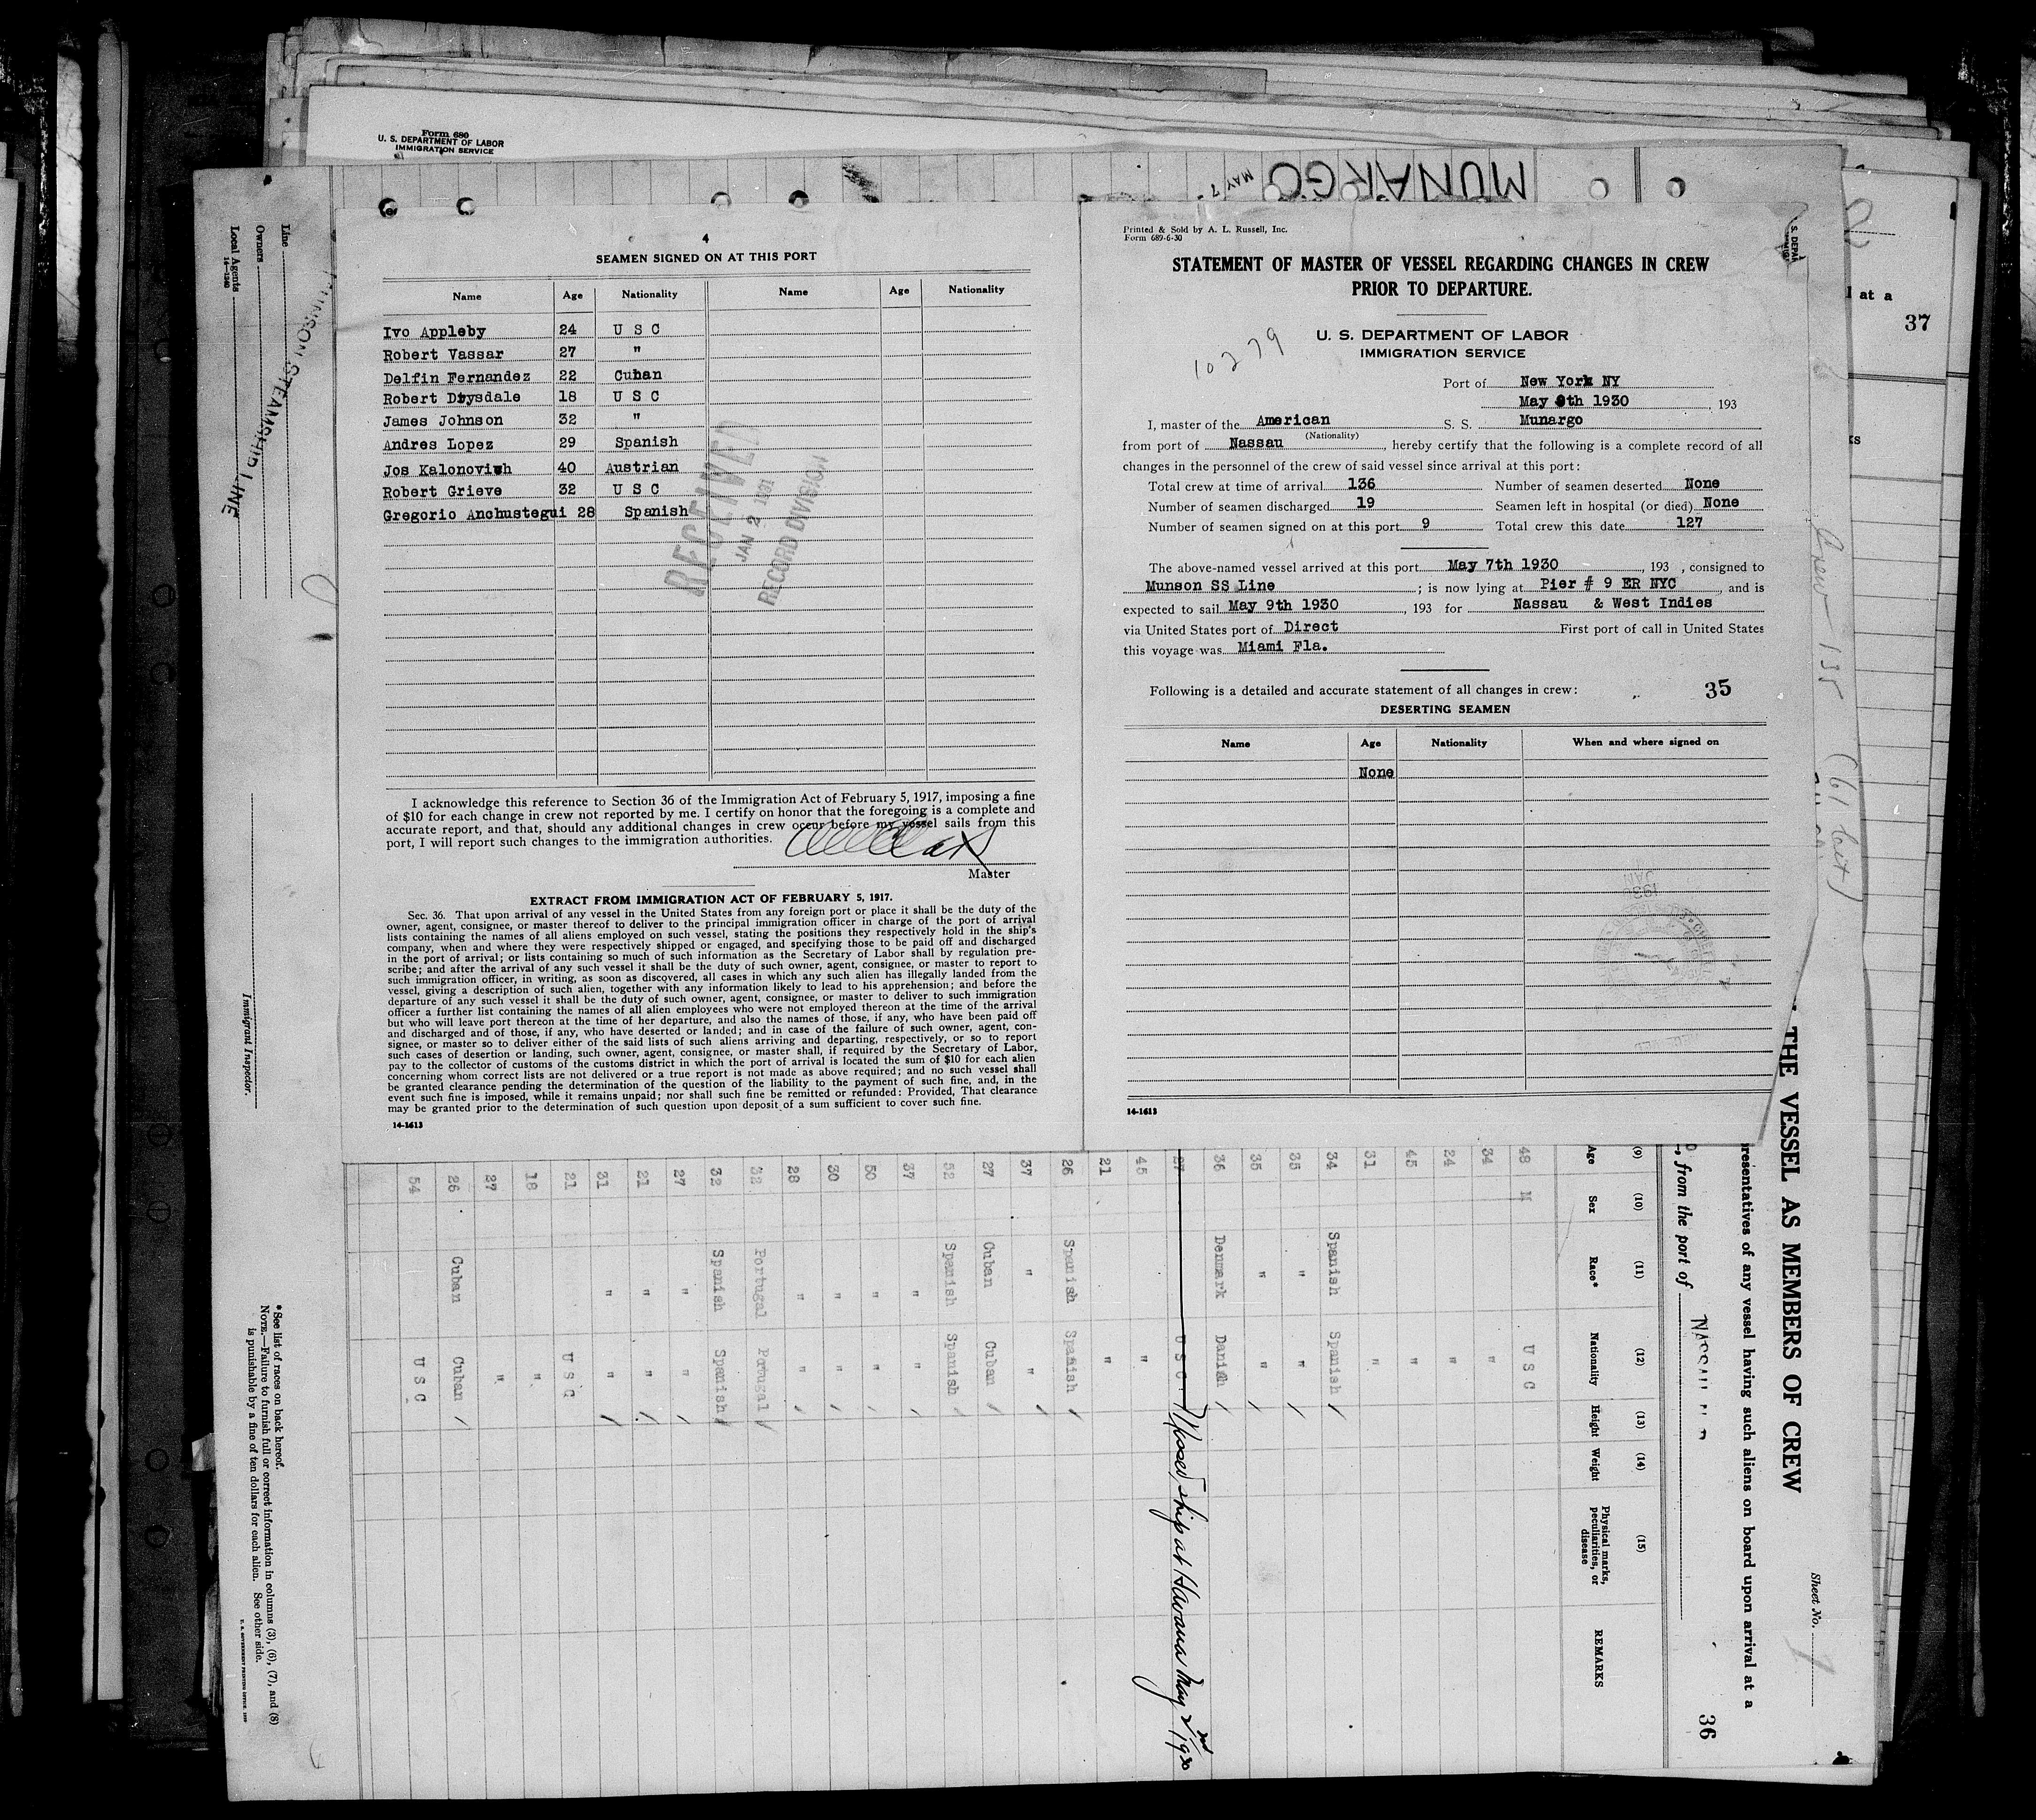 Form 680
U. S. DEPARTMENT OF LABOR
IMMIGRATION SERVICE
MUNARGO
MAY 7
4
SEAMEN SIGNED ON AT THIS PORT
Name Age Nationality Name Age Nationality
Ivo Appleby 24 U S C
Robert Vassar 27 "
Delfin Fernandez 22 Cuban
Robert Drysdale 18 U S C
James Johnson 32 "
Andres Lopez 29 Spanish
Jos Kalonovich 40 Austrian
Robert Grieve 32 U S C
Gregorio Anchustegui 28 Spanish
RECEIVED
JAN 2 1931
RECORD DIVISION
I acknowledge this reference to Section 36 of the Immigration Act of February 5, 1917, imposing a fine
of $10 for each change in crew not reported by me. I certify on honor that the foregoing is a complete and
accurate report, and that, should any additional changes in crew occur before my vessel sails from this
port, I will report such changes to the immigration authorities.
Master
EXTRACT FROM IMMIGRATION ACT OF FEBRUARY 5, 1917.
Sec. 36. That upon arrival of any vessel in the United States from any foreign port or place it shall be the duty of the
owner, agent, consignee, or master thereof to deliver to the principal immigration officer in charge of the port of arrival
lists containing the names of all aliens employed on such vessel, stating the positions they respectively hold in the ship's
company, when and where they were respectively shipped or engaged, and specifying those to be paid off and discharged
in the port of arrival; or lists containing so much of such information as the Secretary of Labor shall by regulation pre-
scribe; and after the arrival of any such vessel it shall be the duty of such owner, agent, consignee, or master to report to
such immigration officer, in writing, as soon as discovered, all cases in which any such alien has illegally landed from the
vessel, giving a description of such alien, together with any information likely to lead to his apprehension; and before the
departure of any such vessel it shall be the duty of such owner, agent, consignee, or master to deliver to such immigration
officer a further list containing the names of all alien employees who were not employed thereon at the time of the arrival
but who will leave port thereon at the time of her departure, and also the names of those, if any, who have been paid off
and discharged and of those, if any, who have deserted or landed; and in case of the failure of such owner, agent, con-
signee, or master so to deliver either of the said lists of such aliens arriving and departing, respectively, or so to report
such cases of desertion or landing, such owner, agent, consignee, or master shall, if required by the Secretary of Labor,
pay to the collector of customs of the customs district in which the port of arrival is located the sum of $10 for each alien
concerning whom correct lists are not delivered or a true report is not made as above required; and no such vessel shall
be granted clearance pending the determination of the question of the liability to the payment of such fine, and, in the
event such fine is imposed, while it remains unpaid; nor shall such fine be remitted or refunded: Provided, That clearance
may be granted prior to the determination of such question upon deposit of a sum sufficient to cover such fine.
14-1613
Printed & Sold by A. L. Russell, Inc.
Form 689-6-30
STATEMENT OF MASTER OF VESSEL REGARDING CHANGES IN CREW
PRIOR TO DEPARTURE.
U. S. DEPARTMENT OF LABOR
IMMIGRATION SERVICE
10279
Port of New York NY
May 9th 1930, 193
I, master of the American S. S. Munargo
(Nationality)
from port of Nassau, hereby certify that the following is a complete record of all
changes in the personnel of the crew of said vessel since arrival at this port:
Total crew at time of arrival 136 Number of seamen deserted None
Number of seamen discharged 19 Seamen left in hospital (or died) None
Number of seamen signed on at this port 9 Total crew this date 127
The above-named vessel arrived at this port May 7th 1930, 193 , consigned to
Munson SS Line; is now lying at Pier # 9 ER NYC, and is
expected to sail May 9th 1930, 193 for Nassau & West Indies
via United States port of Direct First port of call in United States
this voyage was Miami Fla.
Following is a detailed and accurate statement of all changes in crew:
35
DESERTING SEAMEN
Name Age Nationality When and where signed on
None
14-1613
Line
Owners
Local Agents
14-1240
MUNSON STEAMSHIP LINE
Immigrant Inspector.
*See list of races on back hereof.
NOTE.—Failure to furnish full or correct information in columns (3), (6), (7), and (8)
is punishable by a fine of ten dollars for each alien. See other side.
at a
37
Crew 135
Sheet No. 1
THE VESSEL AS MEMBERS OF CREW
resentatives of any vessel having such aliens on board upon arrival at a
36
, from the port of NASSAU
(9) (10) (11) (12) (13) (14) (15)
Age Sex Race* Nationality Height Weight Physical marks, peculiarities, or disease REMARKS
48 M U S C
34 "
24 "
45 "
31 "
34 Spanish Spanish
35 " "
35 " "
36 Denmark Danish
37 U S C Missed ship at Havana May 2nd 1930
45 "
21 "
26 Spanish Spanish
37 " "
27 Cuban Cuban
52 Spanish Spanish
37 " "
50 " "
30 " "
28 " "
32 Portugal Portugal
32 Spanish Spanish
27 " "
21 " "
31 " "
21 U S C
18 "
27 "
26 Cuban Cuban
54 U S C